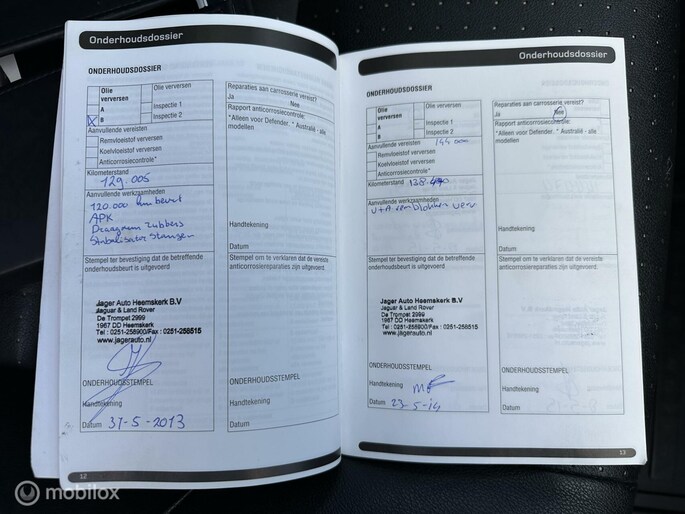 Onderhoudsdossier
ONDERHOUDSDOSSIER
Olie verversen
A
X B
Olie verversen
Inspectie 1
Inspectie 2
Aanvullende vereisten
Remvloeistof verversen
Koelvloeistof verversen
Anticorrosiecontrole*
Kilometerstand
129.005
Aanvullende werkzaamheden
120.000 km beurt
APK
Draagarm rubbers
Stabilisator stangen
Stempel ter bevestiging dat de betreffende
onderhoudsbeurt is uitgevoerd
Jager Auto Heemskerk B.V
Jaguar & Land Rover
De Trompet 2999
1967 DD Heemskerk
Tel : 0251-258900/Fax : 0251-258515
www.jagerauto.nl
ONDERHOUDSSTEMPEL
Handtekening
Datum 31-5-2013
Reparaties aan carrosserie vereist?
Ja Nee
Rapport anticorrosiecontrole:
*Alleen voor Defender. * Australië - alle
modellen
Handtekening
Datum
Stempel om te verklaren dat de vereiste
anticorrosiereparaties zijn uitgevoerd.
ONDERHOUDSSTEMPEL
Handtekening
Datum
12
Onderhoudsdossier
ONDERHOUDSDOSSIER
Olie verversen
A
B
Olie verversen
Inspectie 1
Inspectie 2
Aanvullende vereisten
144 000
Remvloeistof verversen
Koelvloeistof verversen
Anticorrosiecontrole*
Kilometerstand 138.470
Aanvullende werkzaamheden
V+A remblokken verv
Stempel ter bevestiging dat de betreffende
onderhoudsbeurt is uitgevoerd
Jager Auto Heemskerk B.V
Jaguar & Land Rover
De Trompet 2999
1967 DD Heemskerk
Tel : 0251-258900/Fax : 0251-258515
www.jagerauto.nl
ONDERHOUDSSTEMPEL
Handtekening
Datum 23-5-14
Reparaties aan carrosserie vereist?
Ja Nee
Rapport anticorrosiecontrole:
*Alleen voor Defender. * Australië - alle
modellen
Handtekening
Datum
Stempel om te verklaren dat de vereiste
anticorrosiereparaties zijn uitgevoerd.
ONDERHOUDSSTEMPEL
Handtekening
Datum
13
mobilox